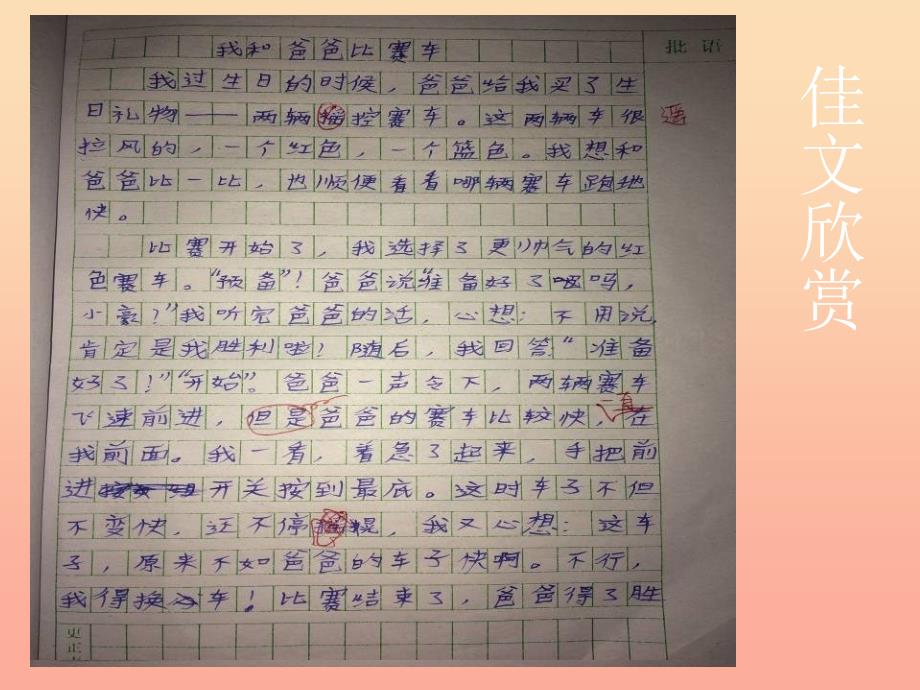 我和爸爸比赛车
批语
我过生日的时候，爸爸给我买了生
日礼物——两辆控赛车。这两辆车很
遥
拉风的，一个红色，一个篮色。我想和
爸爸比一比，也顺便看看哪辆赛车跑地
快。
比赛开始了，我选择了更帅气的红
色赛车。“预备”！爸爸说“准备好了吗，
小豪？”我听完爸爸的话，心想：不用说，
肯定是我胜利啦！随后，我回答“准备
好了！”“开始”。爸爸一声令下，两辆赛车
飞速前进，但是爸爸的赛车比较快，一直在
我前面。我一看，着急了起来，手把前
进开关按到最底。这时车子不但
不变快，还不停，我又心想：这车
子，原来不如爸爸的车子快啊。不行，
我得换车！比赛结束了，爸爸得了胜
佳文欣赏